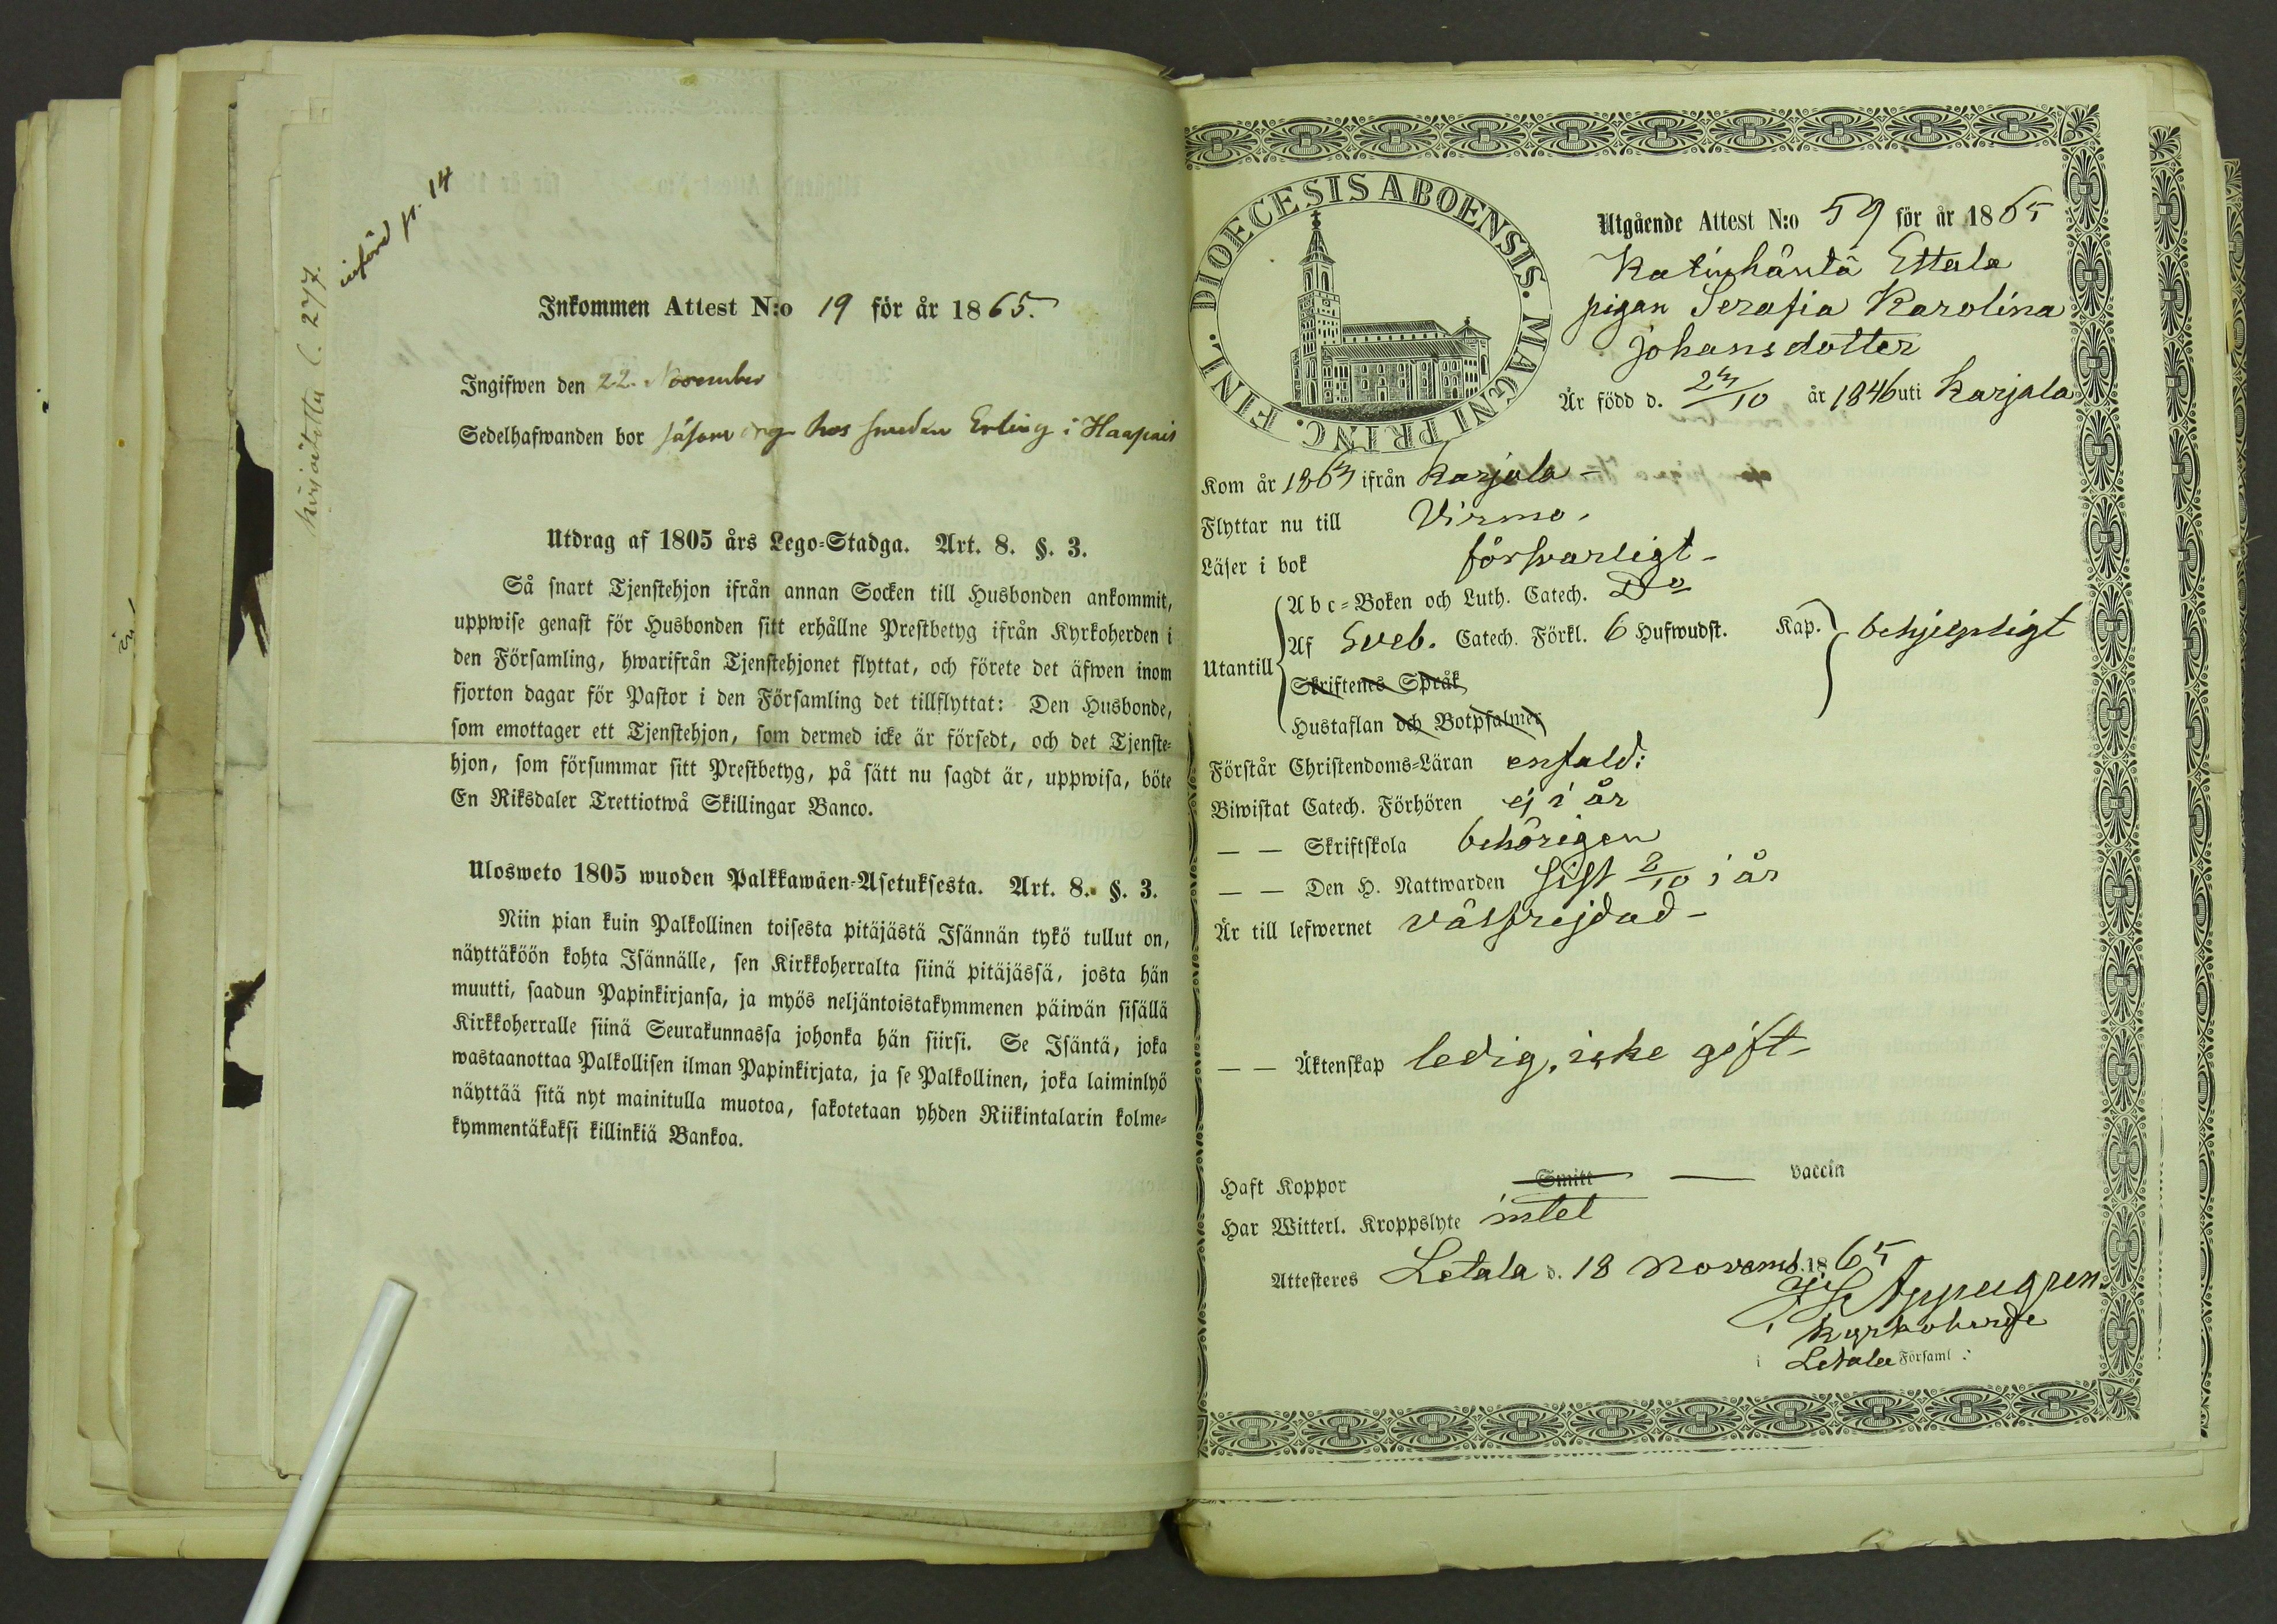 införd p. 14
kirjoitettu C. 277.
Inkommen Attest N:o 19 för år 1865.
Ingifwen den 22. November
Sedelhafwanden bor såsom hos smeden Erling i Haapais
Utdrag af 1805 års Lego-Stadga. Art. 8. §. 3.
Så snart Tjenstehjon ifrån annan Socken till Husbonden ankommit,
uppwise genast för Husbonden sitt erhållne Prestbetyg ifrån Kyrkoherden i
den Församling, hwarifrån Tjenstehjonet flyttat, och förete det äfwen inom
fjorton dagar för Pastor i den Församling det tillflyttat: Den Husbonde,
som emottager ett Tjenstehjon, som dermed icke är försedt, och det Tjenste-
hjon, som försummar sitt Prestbetyg, på sätt nu sagdt är, uppwisa, böte
En Riksdaler Trettiotwå Skillingar Banco.
Ulosweto 1805 wuoden Palkkawäen-Asetuksesta. Art. 8. §. 3.
Niin pian kuin Palkollinen toisesta pitäjästä Isännän tykö tullut on,
näyttäköön kohta Isännälle, sen Kirkkoherralta siinä pitäjässä, josta hän
muutti, saadun Papinkirjansa, ja myös neljäntoistakymmenen päiwän sisällä
Kirkkoherralle siinä Seurakunnassa johonka hän siirsi. Se Isäntä, joka
wastaanottaa Palkollisen ilman Papinkirjata, ja se Palkollinen, joka laiminlyö
näyttää sitä nyt mainitulla muotoa, sakotetaan yhden Riikintalarin kolme-
kymmentäkaksi killinkiä Bankoa.
DIOECESIS ABOENSIS. MAGNI PRINC. FINL.
Utgående Attest N:o 59 för år 1865
Katinhäntä Ettala
pigan Serafia Karolina
Johansdotter
Är född d. 23/10 år 1846 uti Karjala
Kom år 1863 ifrån Karjala -
Flyttar nu till Virmo.
Läser i bok försvarligt -
Utantill
Abc-Boken och Luth. Catech. Do
Af Sveb. Catech. Förkl. 6 Hufwudst. Kap. behjelpligt
Skriftenes Språk
Hustaflan och Botpsalmer
Förstår Christendoms-Läran enfald:
Biwistat Catech. Förhören ej i år
— — Skriftskola behörigen
— — Den H. Nattwarden sist 8/10 i år
Är till lefwernet välfrejdad -
— — Äktenskap ledig, icke gift -
Haft Koppor Smitt — vaccin
Har Witterl. Kroppslyte intet
Attesteres Letala d. 18 Novemb. 1865
Kyrkoherde
i Letala Församl: